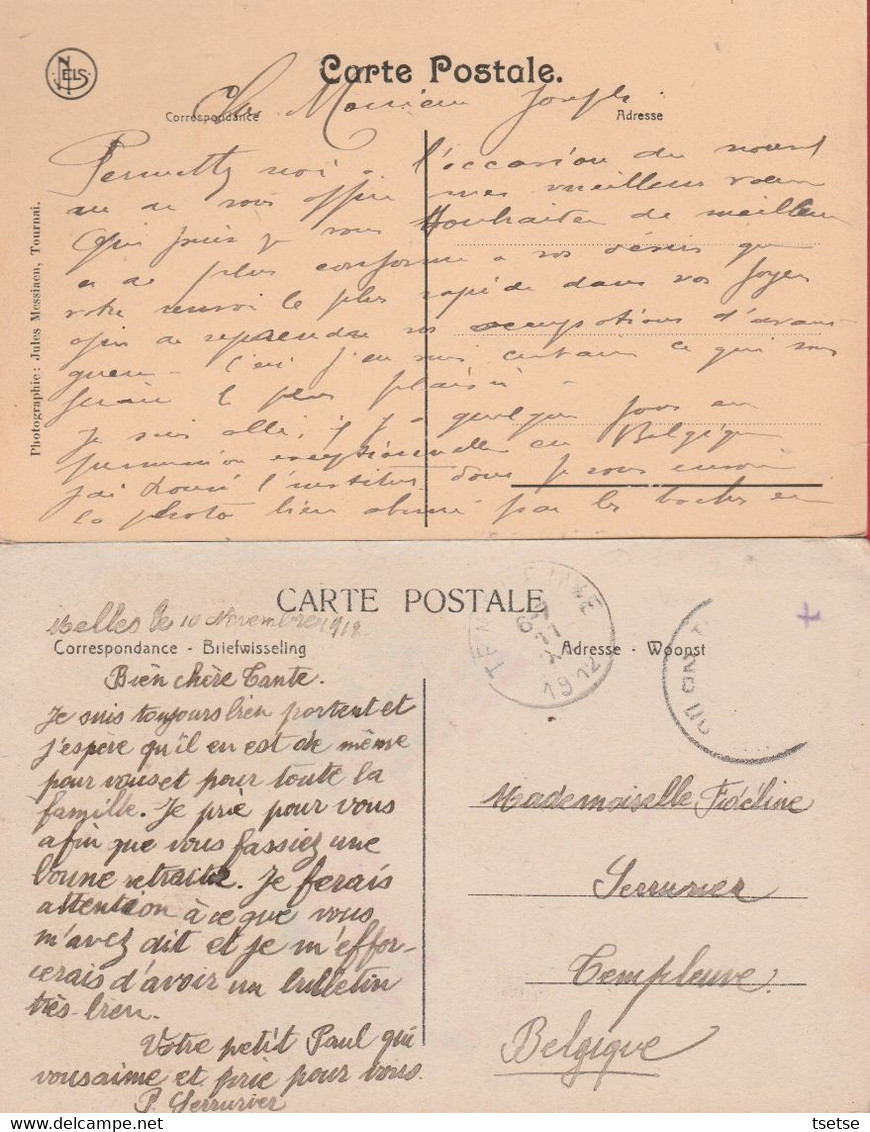 NELS
Carte Postale.
Correspondance
Adresse
Monsieur Joseph
Photographie: Jules Messiaen, Tournai.
Permettez moi à l'occasion du nouvel
an de vous offrir mes meilleurs vœux
Que puis je vous souhaiter de meilleur
et de plus conforme à vos désirs que
votre renvoi le plus rapide dans vos foyers
afin de reprendre vos occupations d'avant
guerre - c'est j'en suis certain ce qui vous
ferait le plus plaisir -
Je suis allé, il y a quelques jours en
permission exceptionnelle en Belgique
j'ai trouvé l'institut dont je vous envoie
la photo bien abimé par les boches en
CARTE POSTALE
le 10 Novembre 1912
Correspondance - Briefwisseling
Adresse - Woonst
1912
Bien chère Tante.
Je suis toujours bien portent et
j'espère qu'il en est de même
pour vous et pour toute la
famille. Je prie pour vous
afin que vous fassiez une
bonne retraite. Je ferais
attention à ce que vous
m'avez dit et je m'effor-
cerais d'avoir un bulletin
très-bien.
Votre petit Paul qui
vous aime et prie pour vous.
P. Serrurier
Mademoiselle Fidéline
Serrurier
Templeuve
Belgique
tsetse